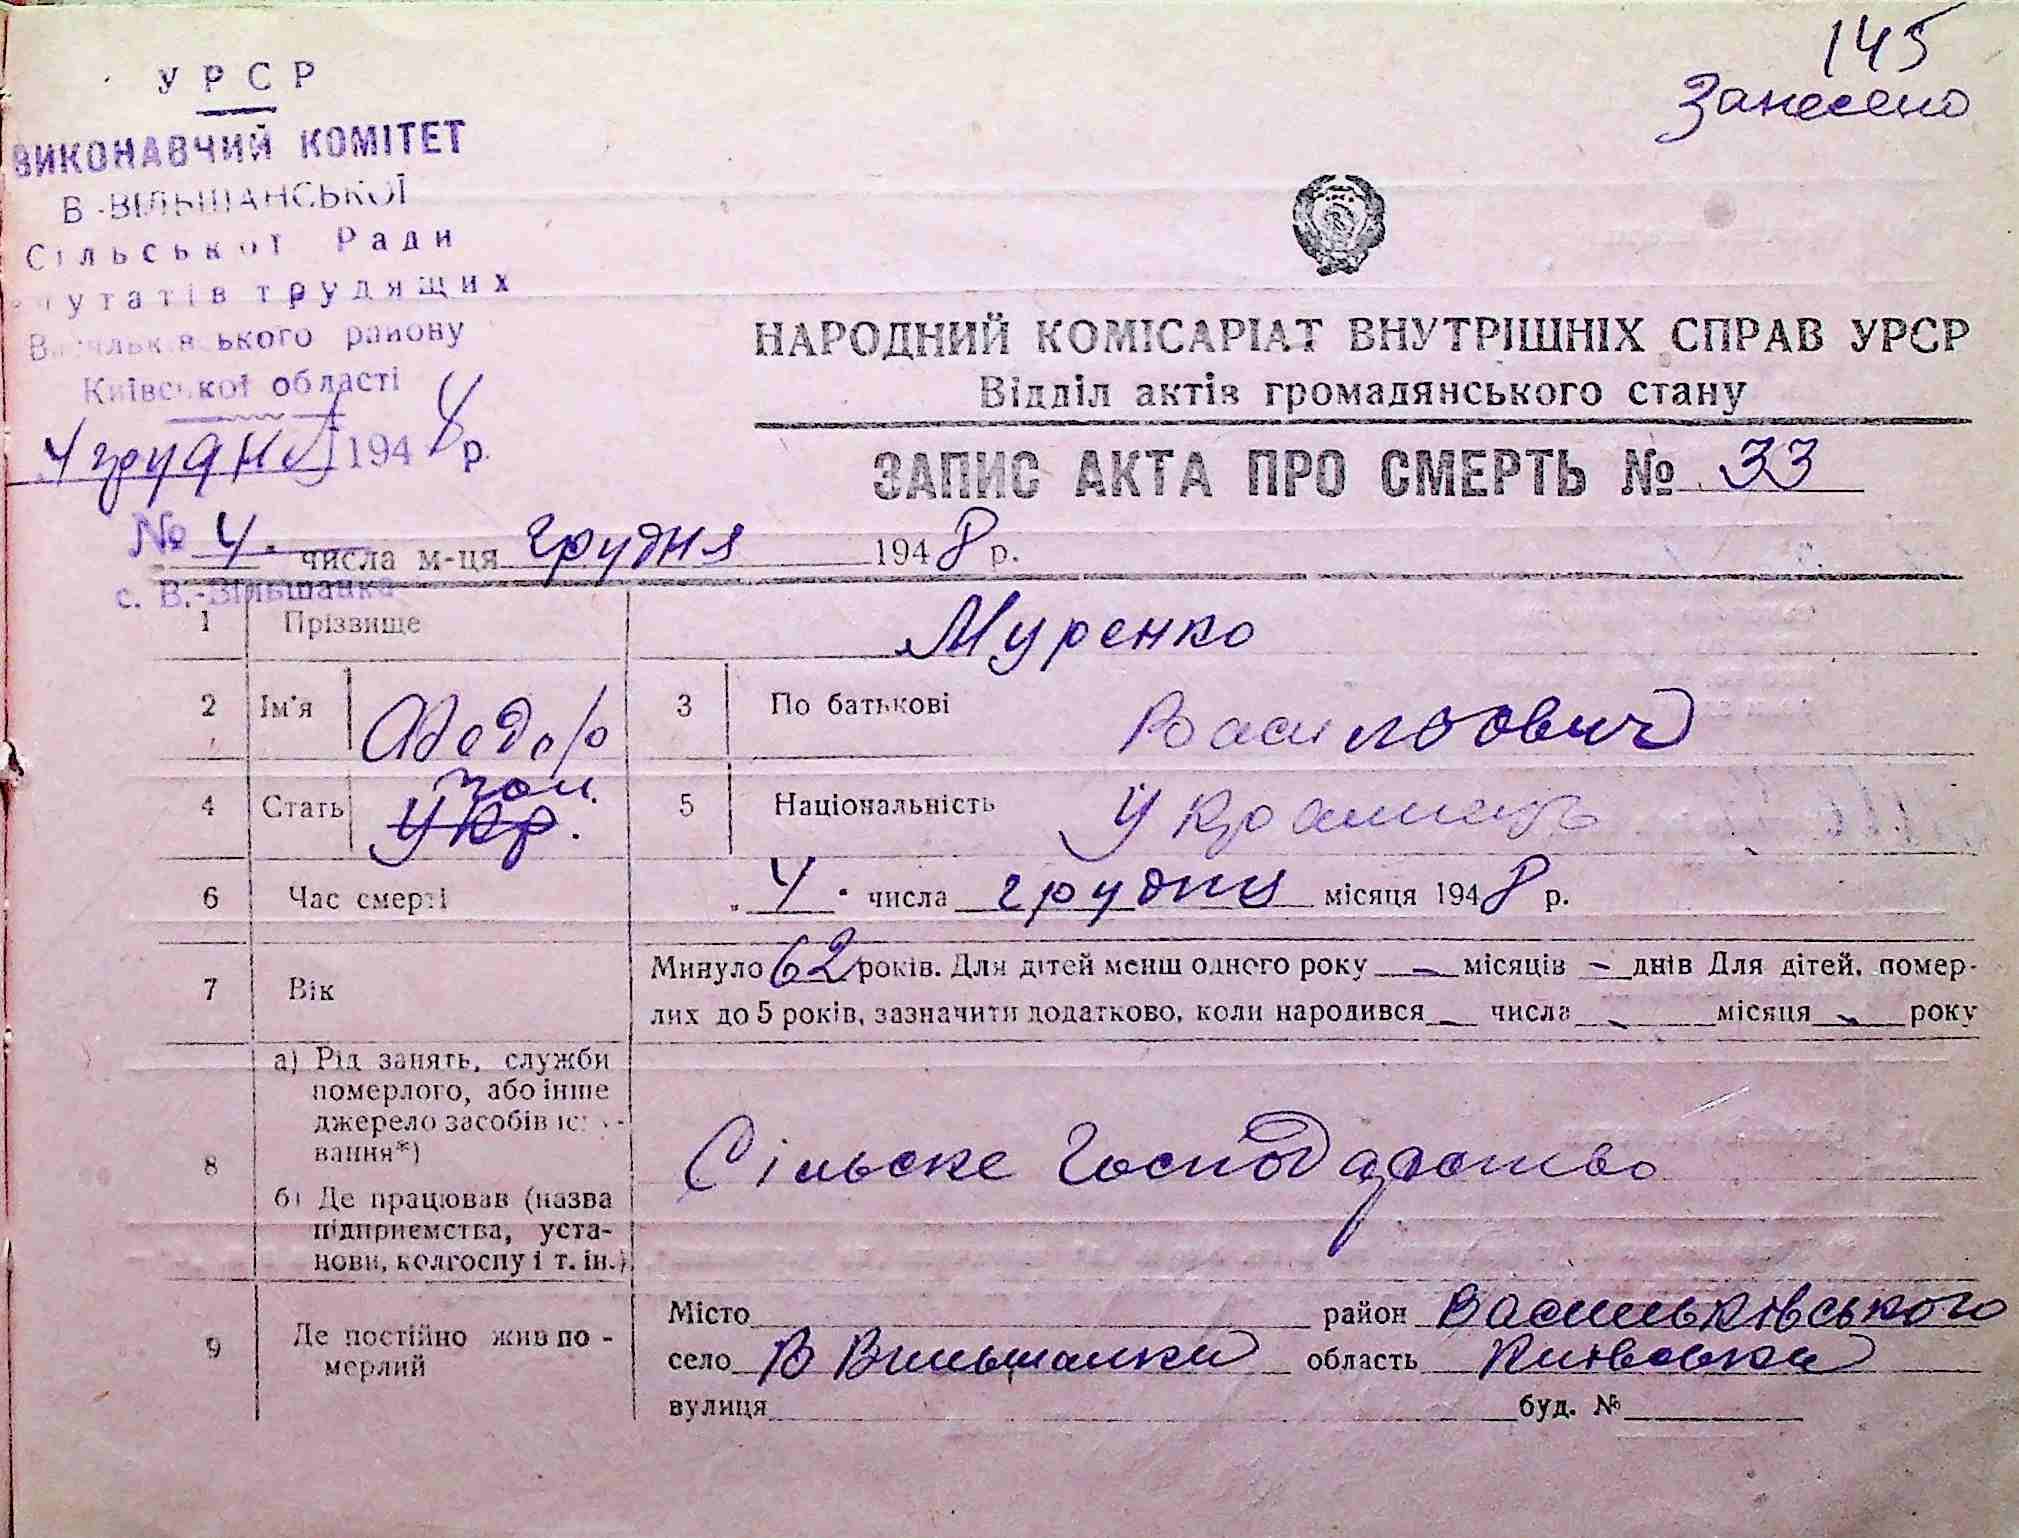 145
Занесено
УРСР
ВИКОНАВЧИЙ КОМІТЕТ
В-ВІЛЬШАНСЬКОЇ
Сільської Ради
путатів трудящих
Васильківського району
Київської області
4 грудня 1948 р.
№
с. В.-Вільшанка
НАРОДНИЙ КОМІСАРІАТ ВНУТРІШНІХ СПРАВ УРСР
Відділ актів громадянського стану
ЗАПИС АКТА ПРО СМЕРТЬ № 33
4. числа м-ця грудня 1948 р.
1 Прізвище Муренко
2 Ім'я Федор 3 По батькові Васильович
4 Стать Укр. чол. 5 Національність Українець
6 Час смерті „4. числа грудня місяця 1948 р.
7 Вік Минуло 62 років. Для дітей менш одного року - місяців - днів Для дітей, помер-
лих до 5 років, зазначити додатково, коли народився числа - місяця - року
8 а) Рід занять, служби
померлого, або інше
джерело засобів існу-
вання*)
б) Де працював (назва
підприємства, уста-
нови, колгоспу і т. ін.)
Сільське господарство
9 Де постійно жив по-
мерлий
Місто район Васильківського
село В Вильшанки область Київська
вулиця буд. №